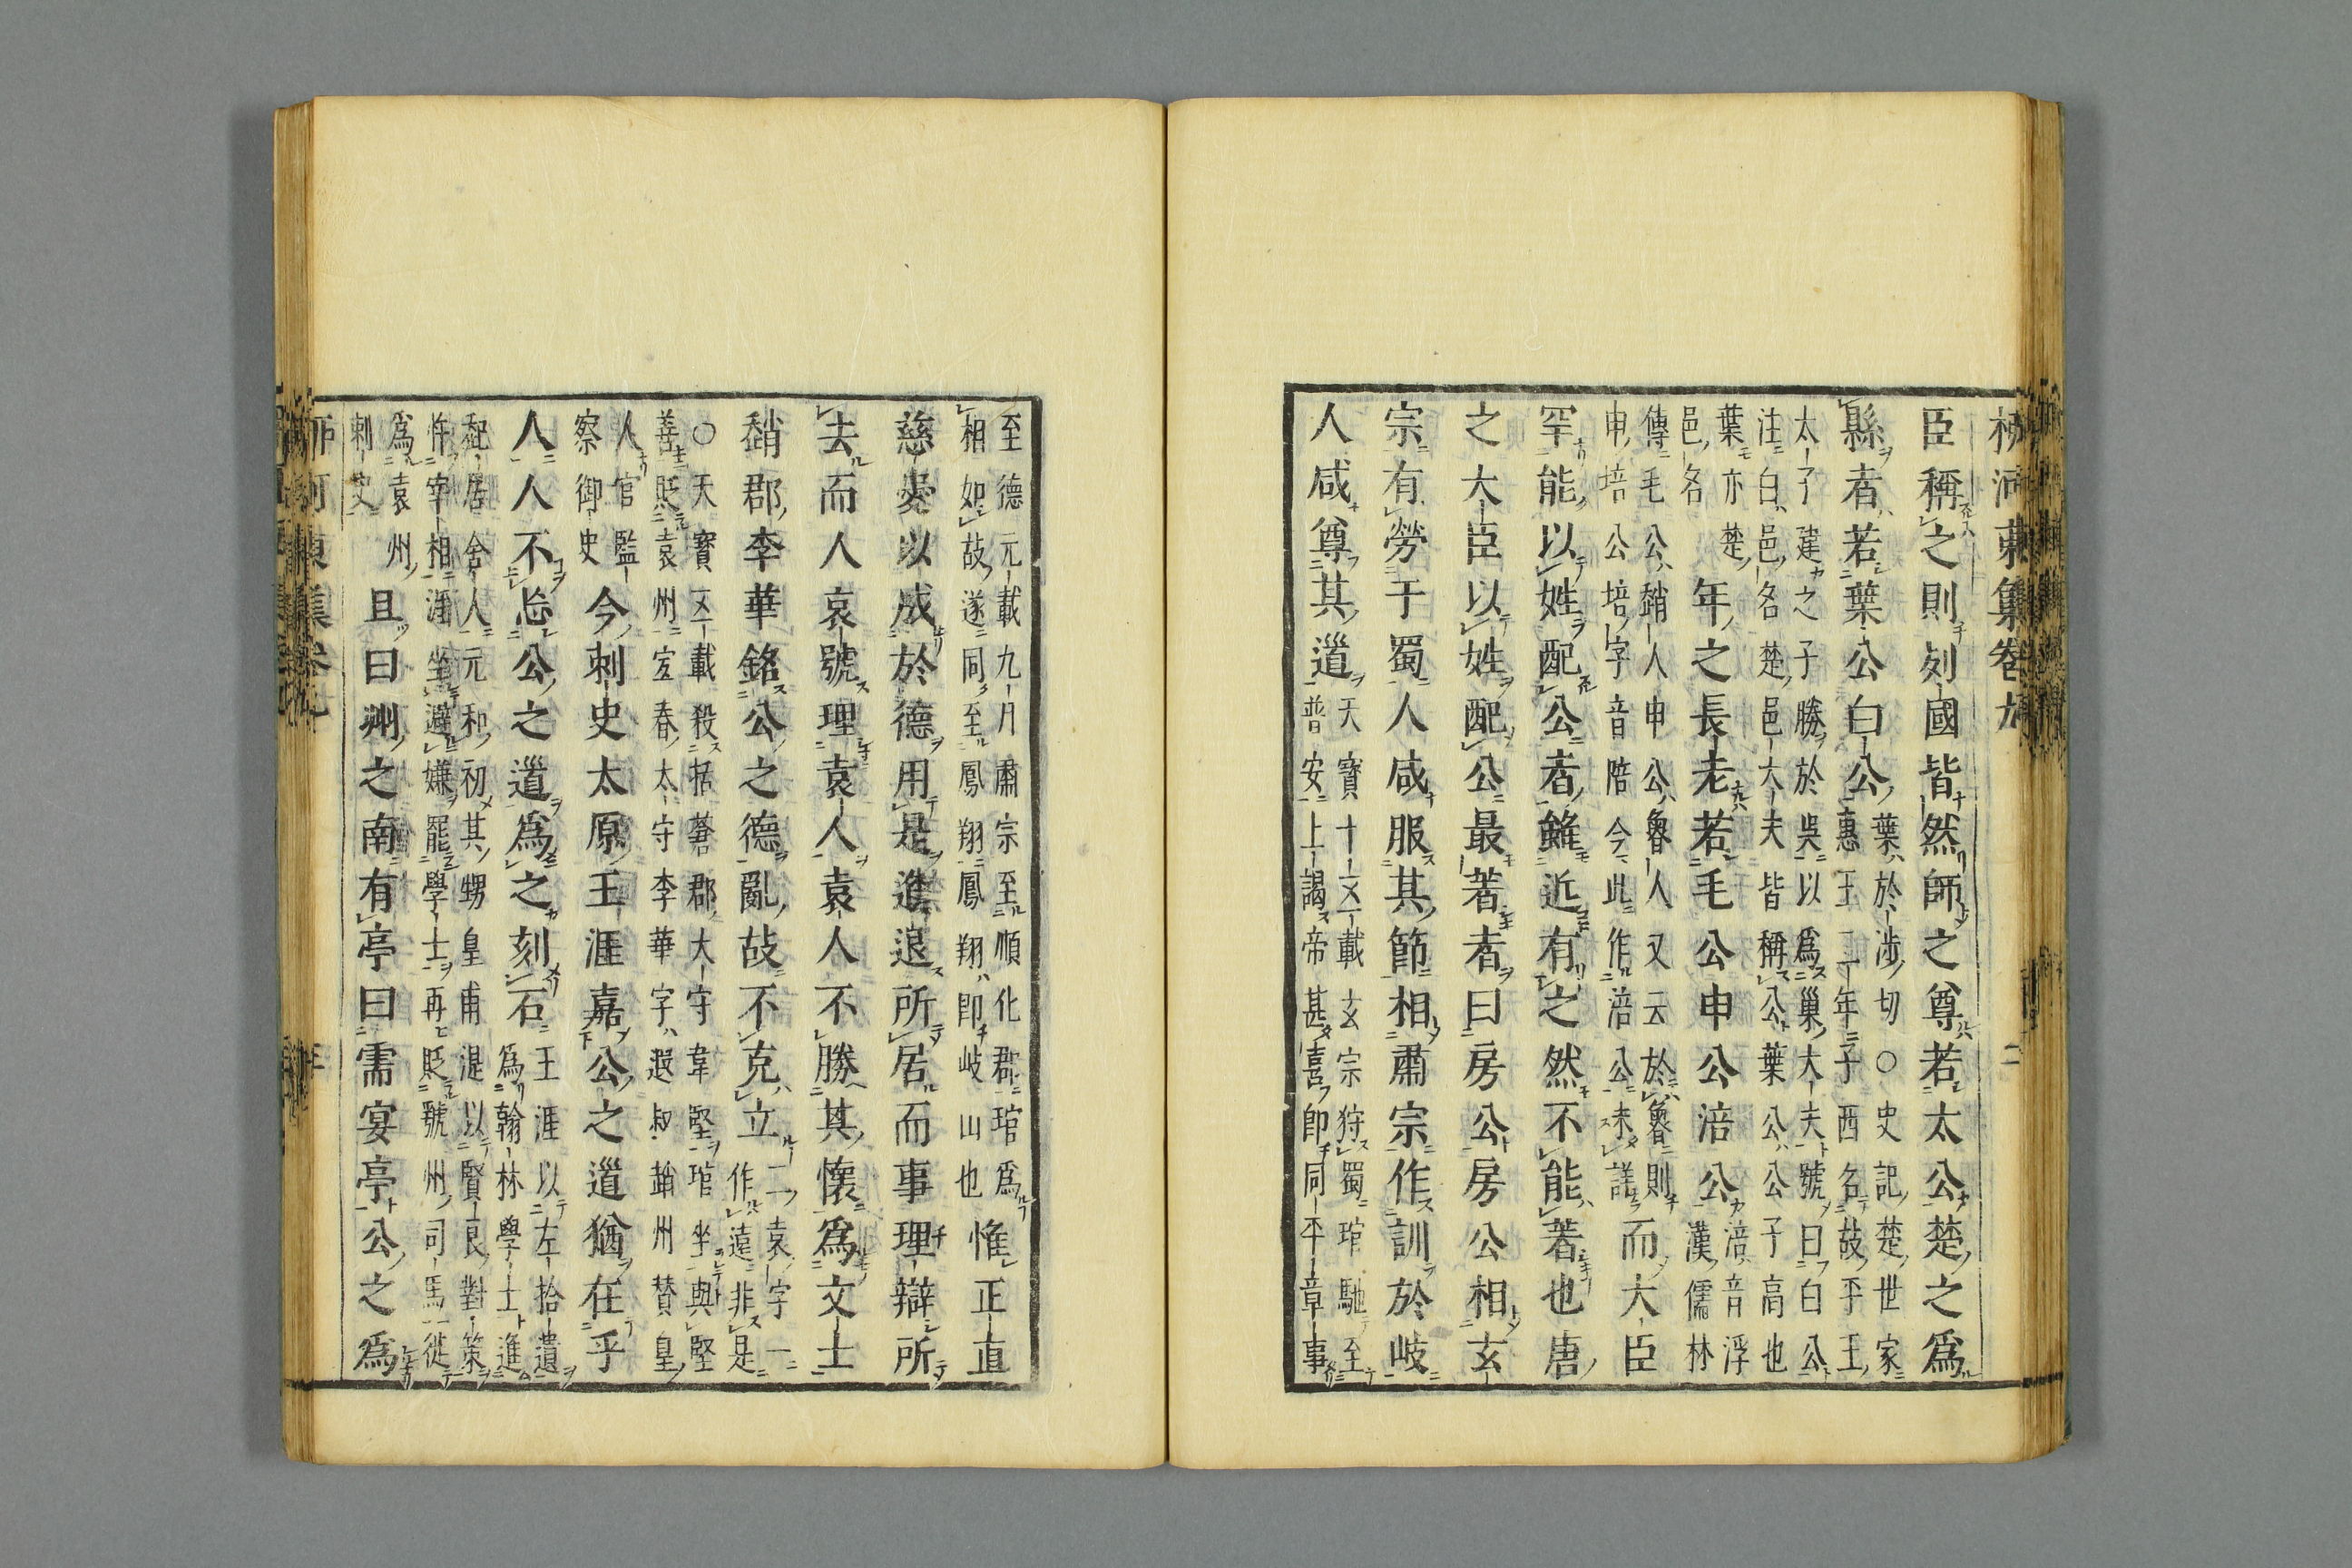 柳河東集卷九 二
臣稱之則列國皆然師之尊若太公楚之爲
縣者若葉公白公
葉於涉切○史記楚世家
惠王二年子西名故平王
太子建之子勝於吳以爲巢大夫號曰白公
注白邑名楚邑大夫皆稱公葉公公子高也
葉亦楚
邑名
年之長老若毛公申公涪公
涪音浮
漢儒林
傳毛公趙人申公魯人又云於魯則
申培公培字音陪今此作涪公未詳
而大臣
罕能以姓配公者雖近有之然不能著也唐
之大臣以姓配公最著者曰房公房公相玄
宗有勞于蜀人咸服其節相肅宗作訓於岐
人咸尊其道
天寶十五載玄宗狩蜀琯馳至
普安上謁帝甚喜即同平章事
至德元載九月肅宗至順化郡琯爲
相如故遂同至鳳翔鳳翔即岐山也
惟正直
慈愛以成於德用是進退所居而事理辯所
去而人哀號理袁人袁人不勝其懷爲文士
趙郡李華銘公之德亂故不克立
一袁字一
作遠非是
○天寶五載殺括蒼郡太守韋堅琯坐與堅
善貶袁州宜春太守李華字遐叔趙州贊皇
人官監
察御史
今刺史太原王涯嘉公之道猶在乎
人人不忘公之道爲之刻石
王涯以左拾遺
爲翰林學士進
起居舍人元和初其甥皇甫湜以賢良對策
忤宰相涯坐避嫌罷學士再貶虢州司馬徙
爲袁州
刺史
且曰州之南有亭曰需宴亭公之爲